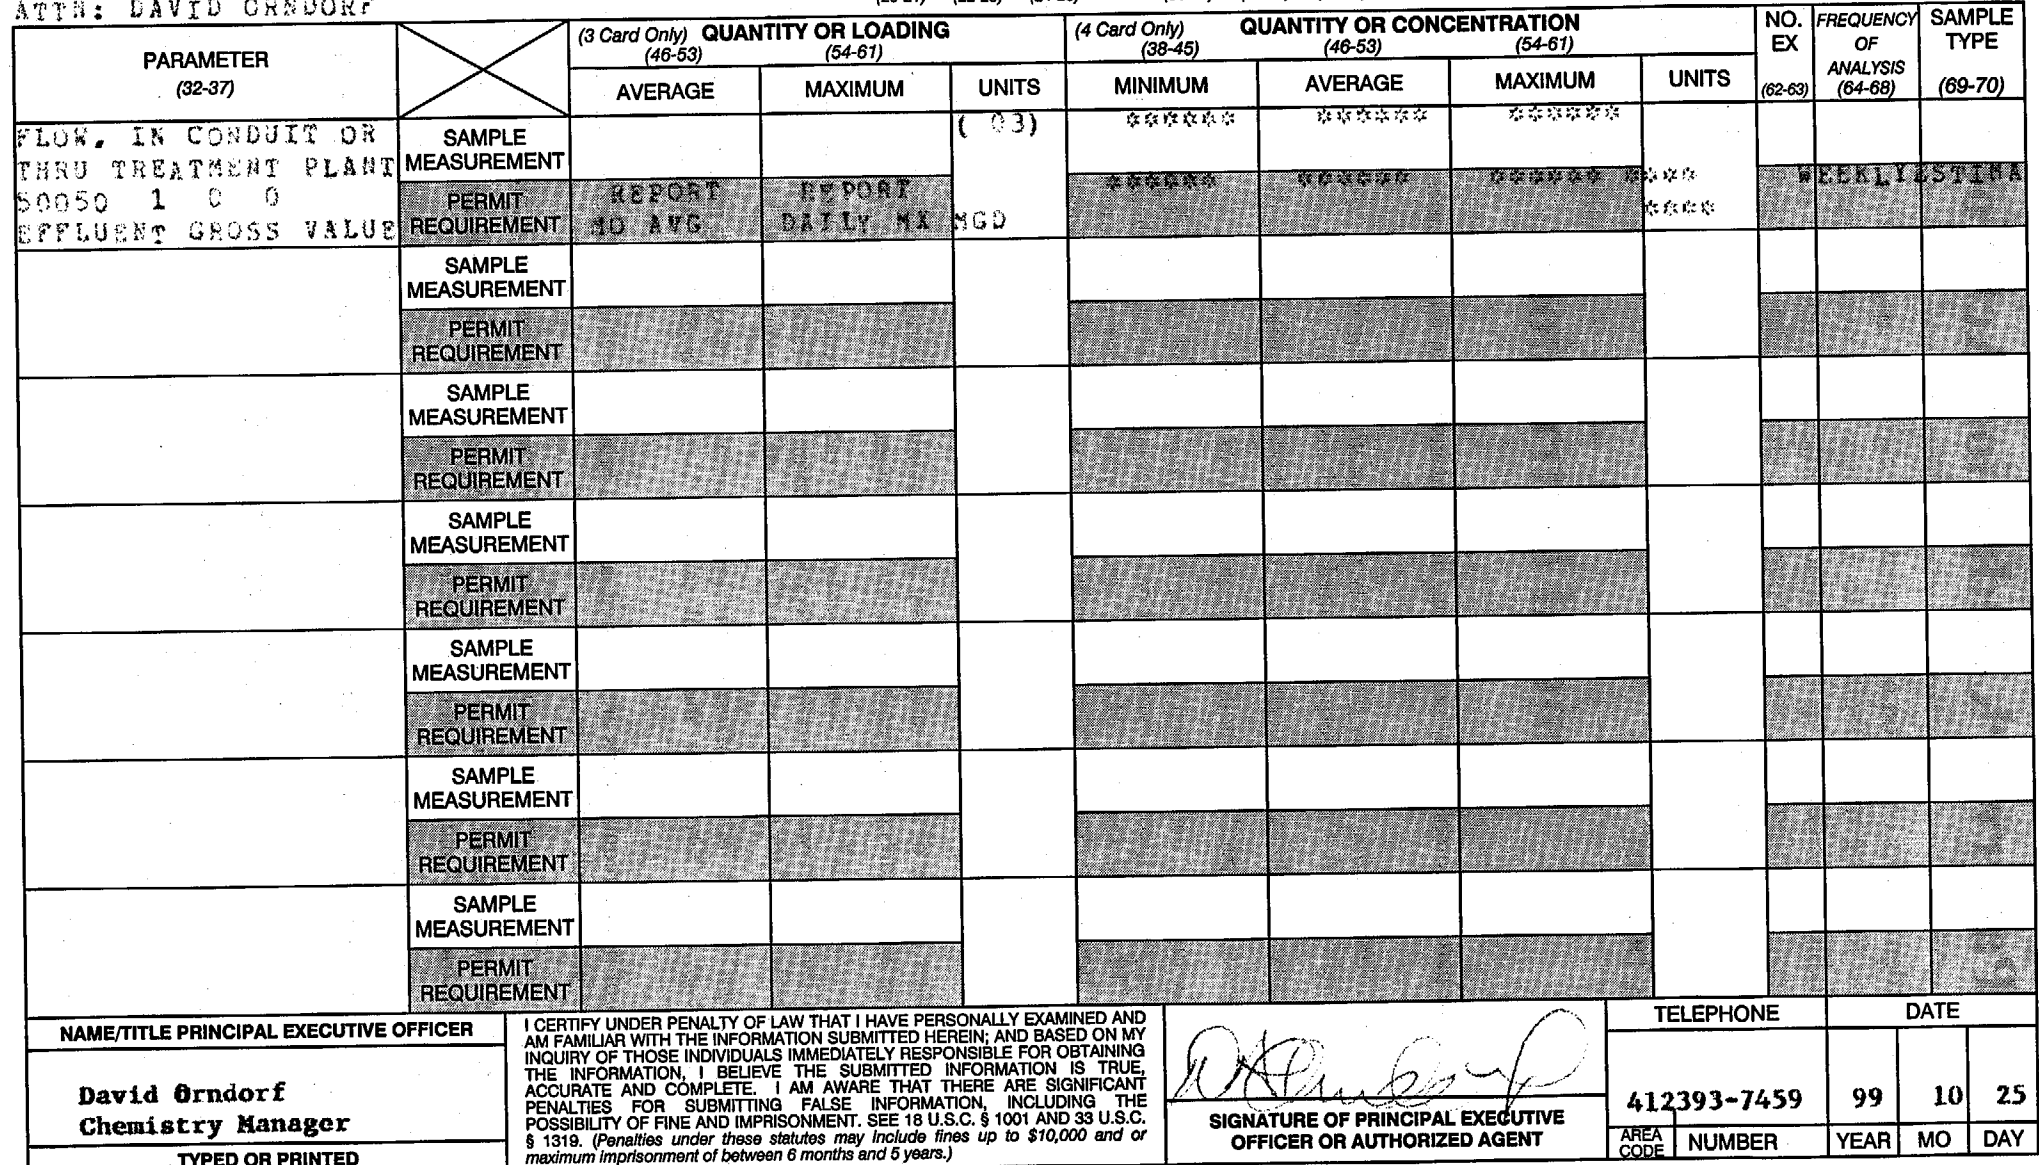 ATTN: DAVID ORNDORF
PARAMETER
(32-37)
(3 Card Only) QUANTITY OR LOADING
(46-53) (54-61)
AVERAGE MAXIMUM UNITS
(4 Card Only) QUANTITY OR CONCENTRATION
(38-45) (46-53) (54-61)
MINIMUM AVERAGE MAXIMUM UNITS
NO.
EX
(62-63)
FREQUENCY
OF
ANALYSIS
(64-68)
SAMPLE
TYPE
(69-70)
FLOW, IN CONDUIT OR
THRU TREATMENT PLANT
50050 1 0 0
EFFLUENT GROSS VALUE
SAMPLE
MEASUREMENT
( 03) ****** ****** ******
PERMIT
REQUIREMENT
REPORT REPORT ****** ****** ****** **** WEEKLY ESTIMA
MO AVG DAILY MX MGD ****
SAMPLE
MEASUREMENT
PERMIT
REQUIREMENT
SAMPLE
MEASUREMENT
PERMIT
REQUIREMENT
SAMPLE
MEASUREMENT
PERMIT
REQUIREMENT
SAMPLE
MEASUREMENT
PERMIT
REQUIREMENT
SAMPLE
MEASUREMENT
PERMIT
REQUIREMENT
SAMPLE
MEASUREMENT
PERMIT
REQUIREMENT
NAME/TITLE PRINCIPAL EXECUTIVE OFFICER
David Orndorf
Chemistry Manager
TYPED OR PRINTED
I CERTIFY UNDER PENALTY OF LAW THAT I HAVE PERSONALLY EXAMINED AND
AM FAMILIAR WITH THE INFORMATION SUBMITTED HEREIN; AND BASED ON MY
INQUIRY OF THOSE INDIVIDUALS IMMEDIATELY RESPONSIBLE FOR OBTAINING
THE INFORMATION, I BELIEVE THE SUBMITTED INFORMATION IS TRUE,
ACCURATE AND COMPLETE. I AM AWARE THAT THERE ARE SIGNIFICANT
PENALTIES FOR SUBMITTING FALSE INFORMATION, INCLUDING THE
POSSIBILITY OF FINE AND IMPRISONMENT. SEE 18 U.S.C. § 1001 AND 33 U.S.C.
§ 1319. (Penalties under these statutes may include fines up to $10,000 and or
maximum imprisonment of between 6 months and 5 years.)
SIGNATURE OF PRINCIPAL EXECUTIVE
OFFICER OR AUTHORIZED AGENT
TELEPHONE
412393-7459
AREA
CODE
NUMBER
DATE
99 10 25
YEAR MO DAY